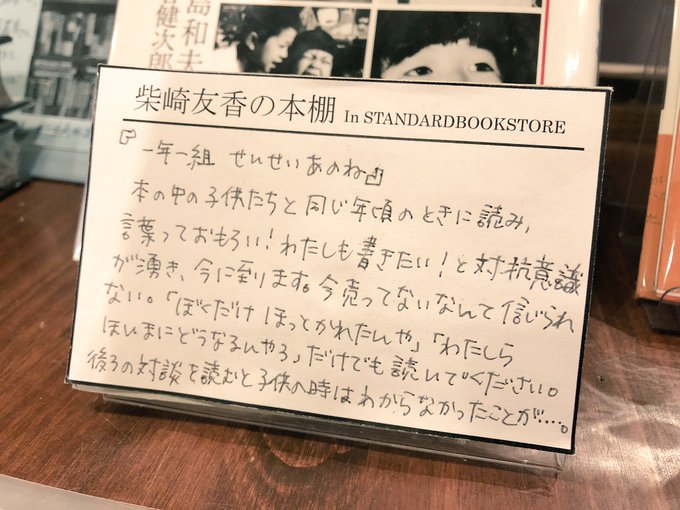 島和夫
健次郎
柴崎友香の本棚 In STANDARDBOOKSTORE
『一年一組 せんせいあのね』
本の中の子供たちと同じ年頃のときに読み、
言葉っておもろい！わたしも書きたい！と対抗意識
が湧き、今に到ります。今売ってないなんて信じられ
ない。「ぼくだけ ほっとかれたんや」「わたしら
ほんまにどうなるんやろ」だけでも読んでください。
後ろの対談を読むと子供の時はわからなかったことが…。